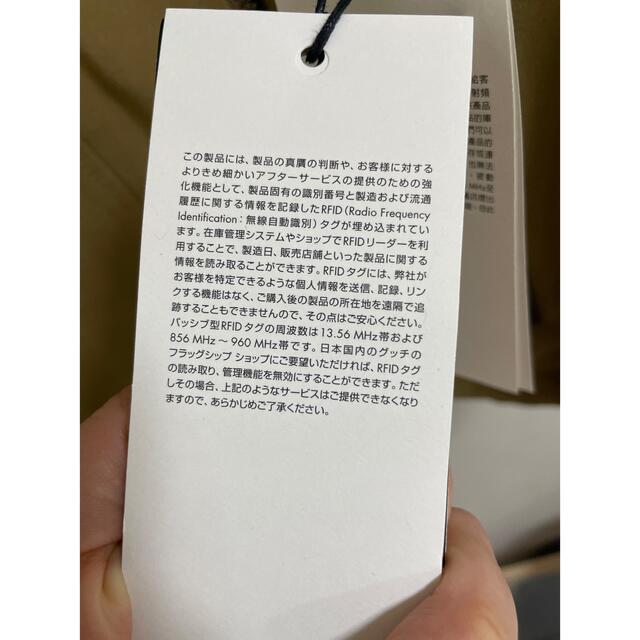 この製品には、製品の真贋の判断や、お客様に対する
よりきめ細かいアフターサービスの提供のための強
化機能として、製品固有の識別番号と製造および流通
履歴に関する情報を記録したRFID（Radio Frequency
Identification：無線自動識別）タグが埋め込まれてい
ます。在庫管理システムやショップでRFIDリーダーを利
用することで、製造日、販売店舗といった製品に関する
情報を読み取ることができます。RFIDタグには、弊社が
お客様を特定できるような個人情報を送信、記録、リン
クする機能はなく、ご購入後の製品の所在地を遠隔で追
跡することもできませんので、その点はご安心ください。
パッシブ型RFIDタグの周波数は13.56 MHz帯および
856 MHz～960 MHz帯です。日本国内のグッチの
フラッグシップ ショップにご要望いただければ、RFIDタグ
の読み取り、管理機能を無効にすることができます。ただ
しその場合、上記のようなサービスはご提供できなくなり
ますので、あらかじめご了承ください。
給客
射頻
產品
的庫
們可以
產品的
存或連
無法
，被動
MHz至